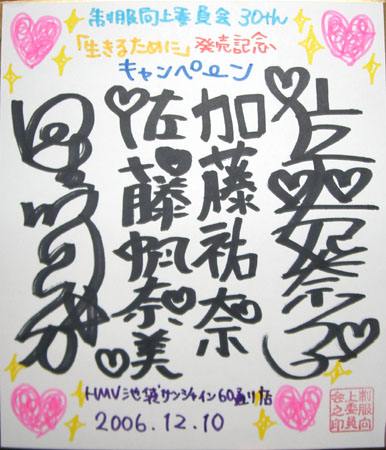 制服向上委員会 30th
「生きるために」発売記念
キャンペーン
加藤祐奈
佐藤帆奈美
HMV池袋サンシャイン60通り店
2006.12.10
制服向
上委員
会之印